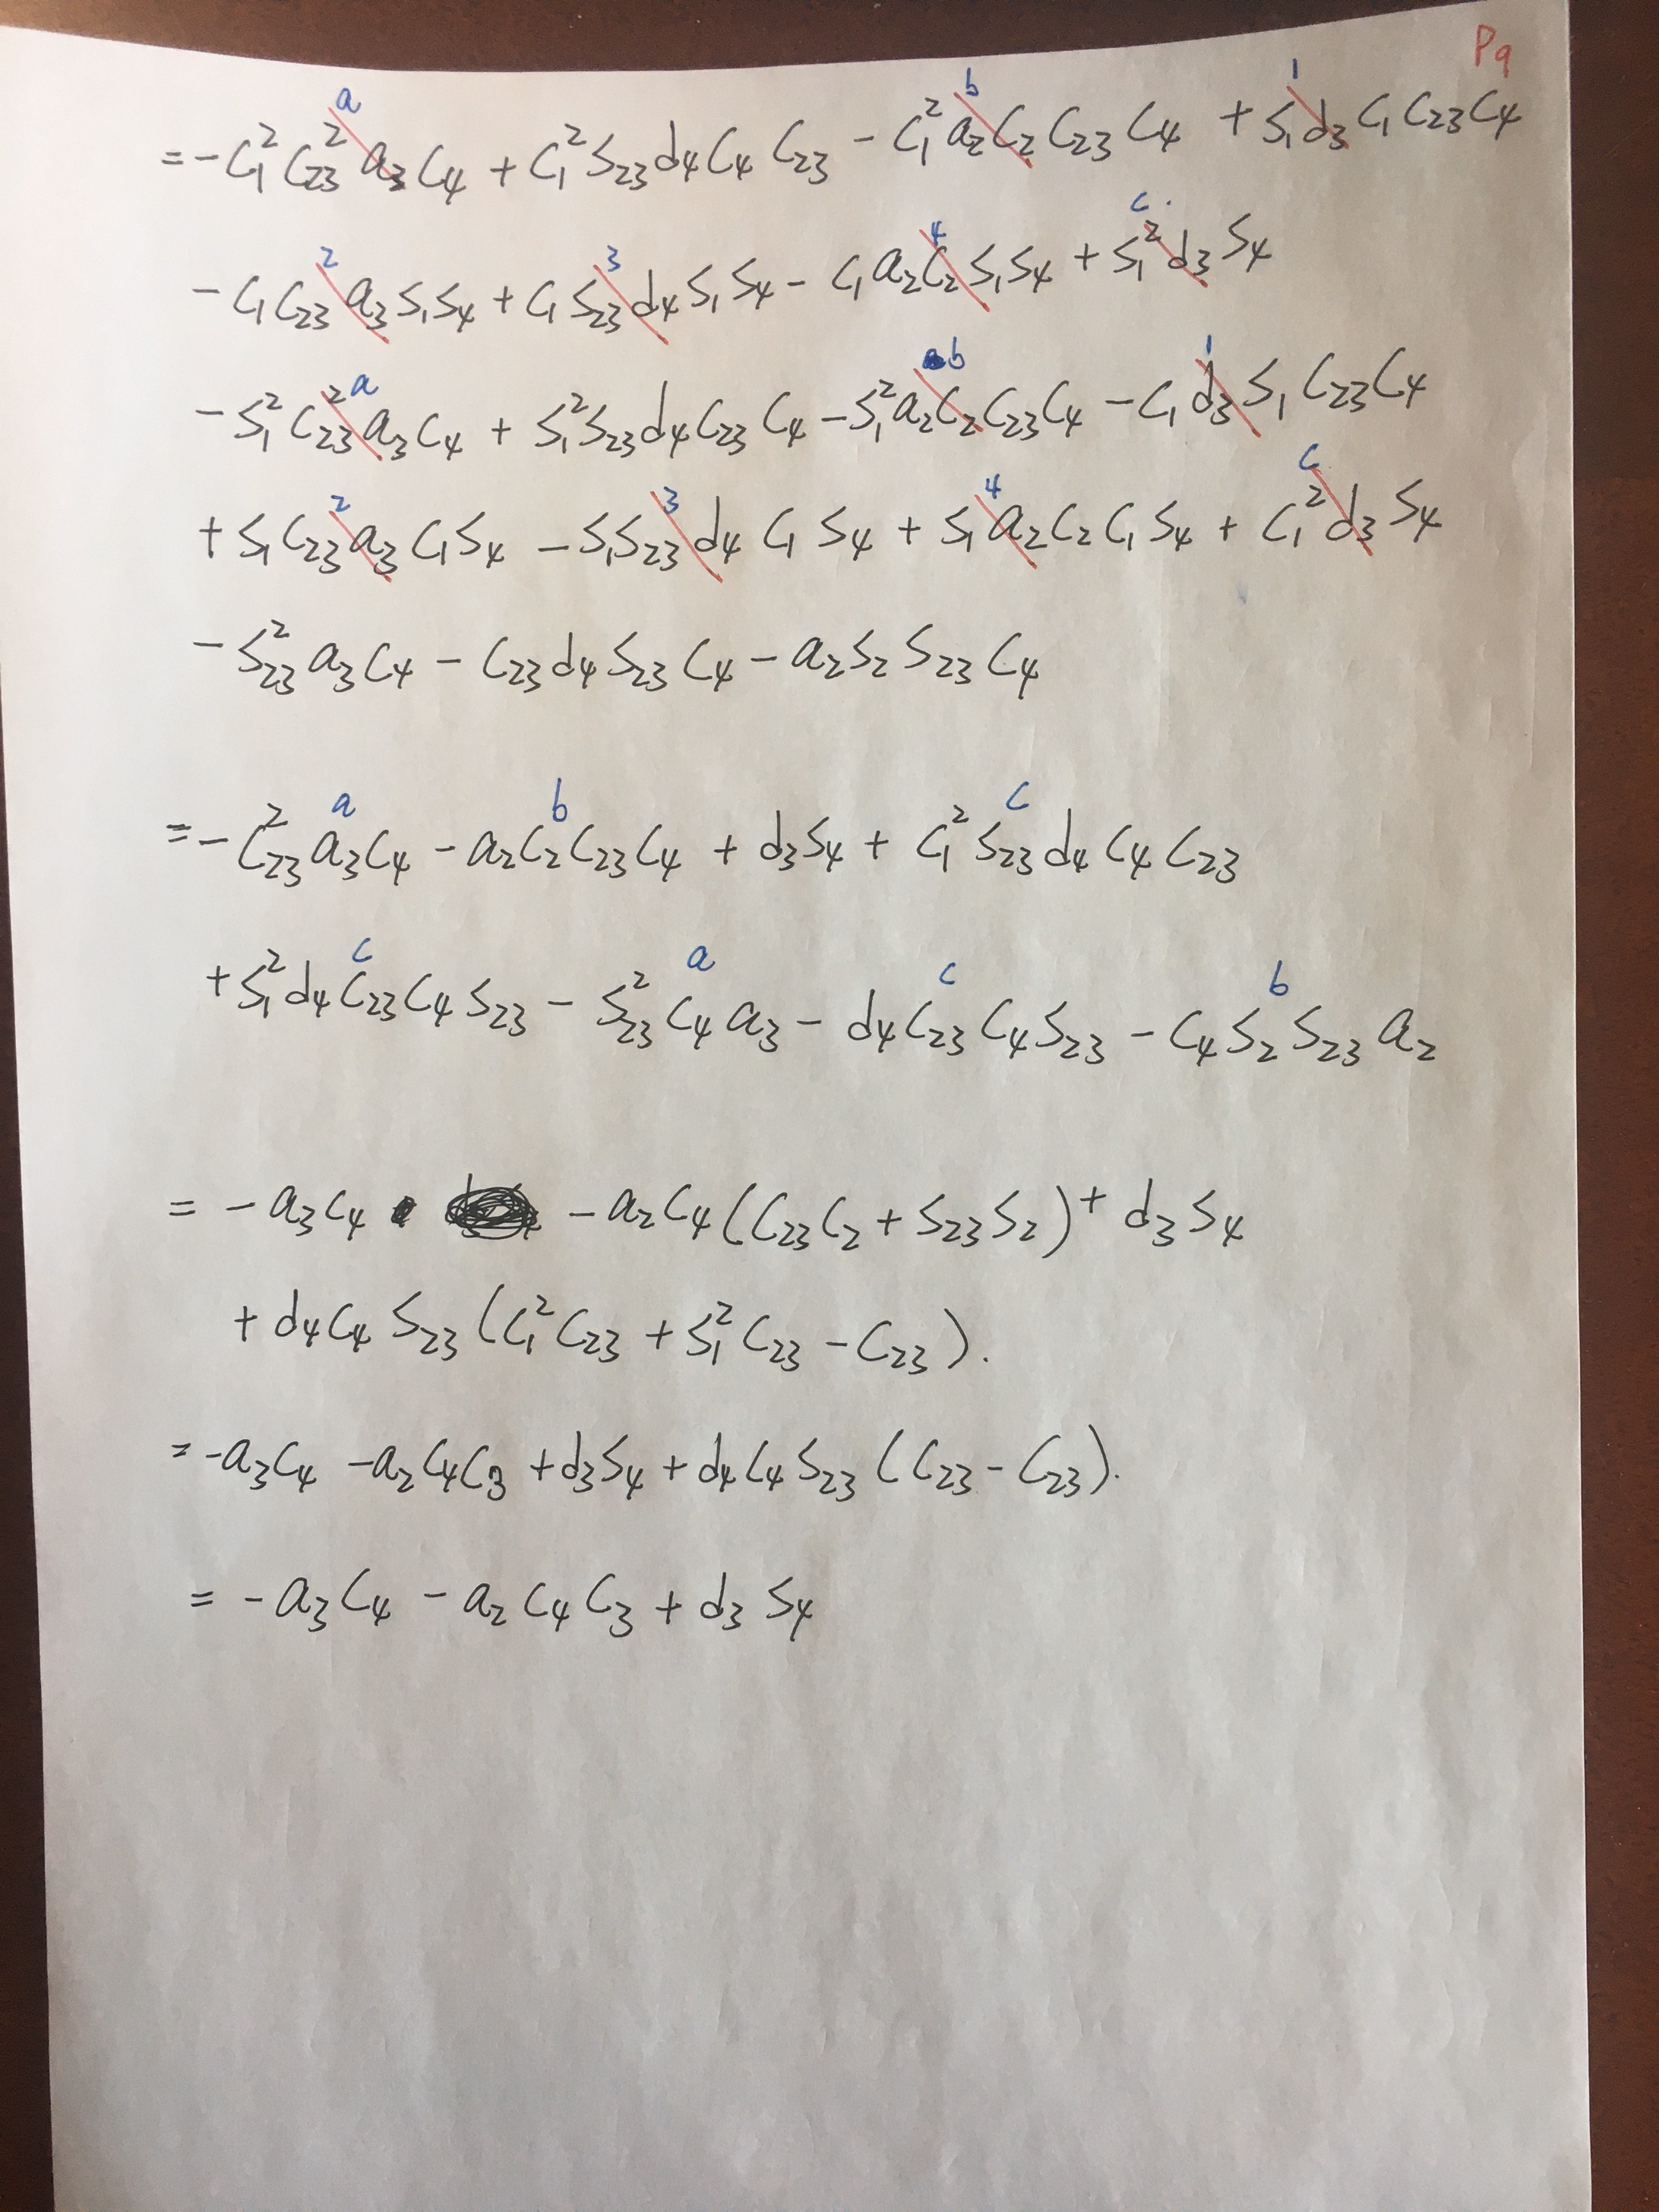 P9
a b 1
= - C₁² C₂₃² a₃ C₄ + C₁² S₂₃ d₄ C₄ C₂₃ - C₁² a₂ C₂ C₂₃ C₄ + S₁ d₃ C₁ C₂₃ C₄
2 3 4 c
- C₁ C₂₃ a₃ S₁ S₄ + C₁ S₂₃ d₄ S₁ S₄ - C₁ a₂ C₂ S₁ S₄ + S₁² d₃ S₄
a b 1
- S₁² C₂₃² a₃ C₄ + S₁² S₂₃ d₄ C₂₃ C₄ - S₁² a₂ C₂ C₂₃ C₄ - C₁ d₃ S₁ C₂₃ C₄
2 3 4 c
+ S₁ C₂₃ a₃ C₁ S₄ - S₁ S₂₃ d₄ C₁ S₄ + S₁ a₂ C₂ C₁ S₄ + C₁² d₃ S₄
- S₂₃² a₃ C₄ - C₂₃ d₄ S₂₃ C₄ - a₂ S₂ S₂₃ C₄
a b c
= - C₂₃² a₃ C₄ - a₂ C₂ C₂₃ C₄ + d₃ S₄ + C₁² S₂₃ d₄ C₄ C₂₃
c a c b
+ S₁² d₄ C₂₃ C₄ S₂₃ - S₂₃² C₄ a₃ - d₄ C₂₃ C₄ S₂₃ - C₄ S₂ S₂₃ a₂
= - a₃ C₄ - a₂ C₄ (C₂₃ C₂ + S₂₃ S₂) + d₃ S₄
+ d₄ C₄ S₂₃ (C₁² C₂₃ + S₁² C₂₃ - C₂₃).
= - a₃ C₄ - a₂ C₄ C₃ + d₃ S₄ + d₄ C₄ S₂₃ (C₂₃ - C₂₃).
= - a₃ C₄ - a₂ C₄ C₃ + d₃ S₄